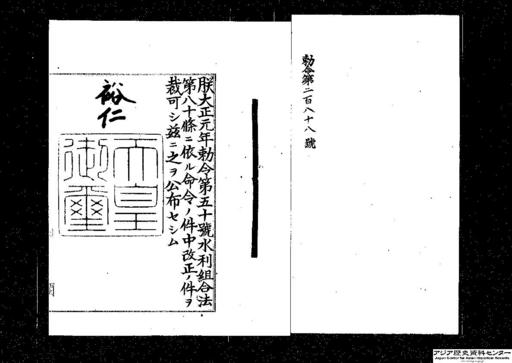 勅令第二百八十八號
朕大正元年勅令第五十號水利組合法
第八十條ニ依ル命令ノ件中改正ノ件ヲ
裁可シ茲ニ之ヲ公布セシム
裕仁
天皇
御璽
アジア歴史資料センター
Japan Center for Asian Historical Records